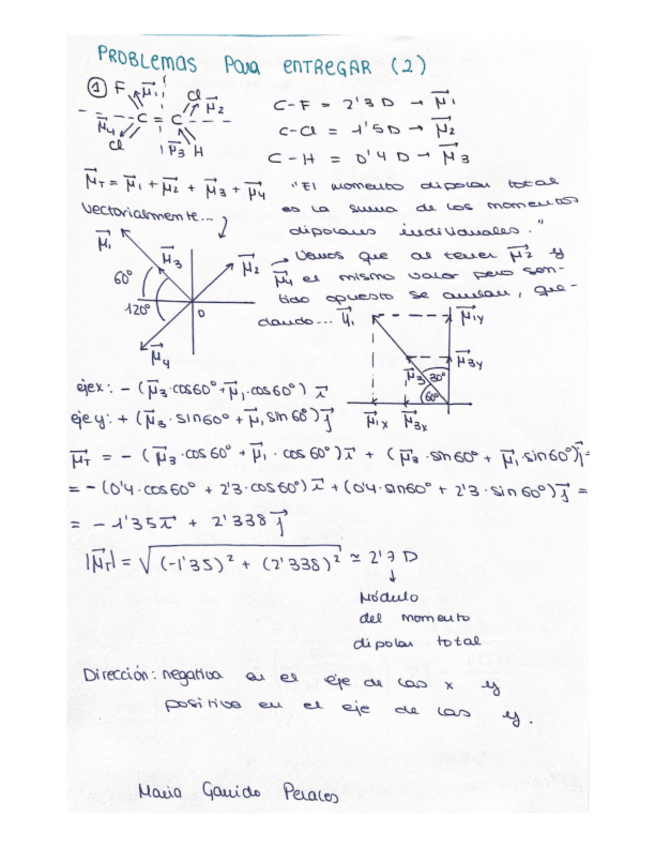 PROBLEMAS PARA ENTREGAR (2)
① F μ⃗1 Cl μ⃗2
μ⃗4 C = C
Cl μ⃗3 H
C-F = 2'3 D → μ⃗1
C-Cl = 1'5 D → μ⃗2
C-H = 0'4 D → μ⃗3
μ⃗T = μ⃗1 + μ⃗2 + μ⃗3 + μ⃗4
"El momento dipolar total
es la suma de los momentos
dipolares individuales."
Vectorialmente...
μ⃗1 μ⃗3 μ⃗2
60°
120° 0
μ⃗4
→ Vemos que al tener μ⃗2 y
μ⃗4 el mismo valor pero sen-
tido opuesto se anulan, que-
dando...
μ⃗1 μ⃗1y
μ⃗3 30° μ⃗3y
60°
μ⃗1x μ⃗3x
eje x: - (μ⃗3·cos60° + μ⃗1·cos60°) i⃗
eje y: + (μ⃗3·sin60° + μ⃗1 sin 60°) j⃗
μ⃗T = - (μ⃗3·cos60° + μ⃗1·cos 60°) i⃗ + (μ⃗3·sin60° + μ⃗1·sin60°) j⃗ =
= - (0'4·cos60° + 2'3·cos60°) i⃗ + (0'4·sin60° + 2'3·sin60°) j⃗ =
= - 1'35 i⃗ + 2'338 j⃗
|μ⃗T| = √(-1'35)² + (2'338)² ≃ 2'7 D
↓
Módulo
del momento
dipolar total
Dirección: negativa en el eje de las x y
positivo en el eje de las y.
Maria Garrido Perales